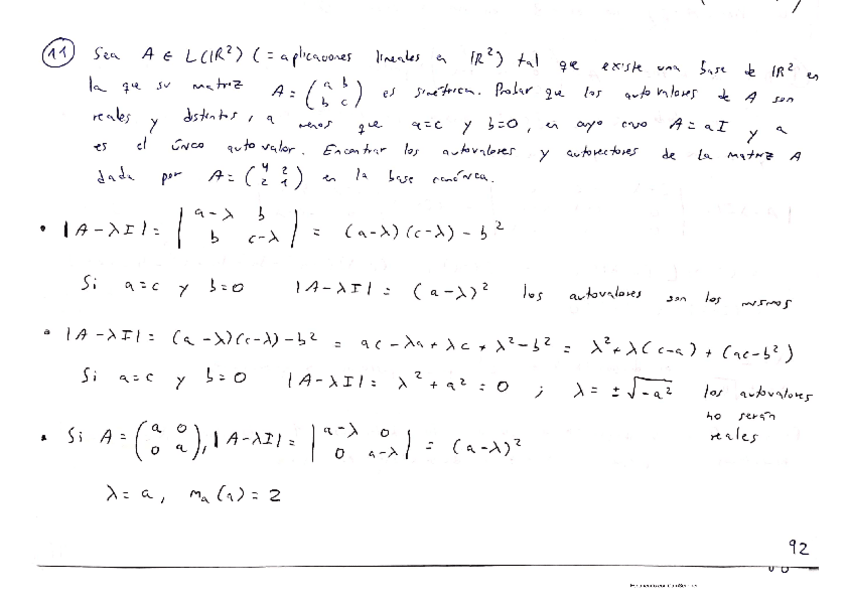 11 Sea A ∈ L(IR²) (= aplicaciones lineales en IR²) tal que existe una base de IR² en
la que su matriz A = (a b; b c) es simétrica. Probar que los autovalores de A son
reales y distintos, a menos que a=c y b=0, en cuyo caso A = aI y a
es el único autovalor. Encontrar los autovalores y autovectores de la matriz A
dada por A = (4 2; 2 1) en la base canónica.
• |A-λI| = |a-λ b; b c-λ| = (a-λ)(c-λ) - b²
Si a=c y b=0 |A-λI| = (a-λ)² los autovalores son los mismos
• |A-λI| = (a-λ)(c-λ)-b² = ac - λa + λc + λ² - b² = λ² + λ(c-a) + (ac-b²)
Si a=c y b=0 |A-λI| = λ² + a² = 0 ; λ = ±√-a² los autovalores
no serán
reales
• Si A = (a 0; 0 a), |A-λI| = |a-λ 0; 0 a-λ| = (a-λ)²
λ = a, mₐ(a) = 2
92